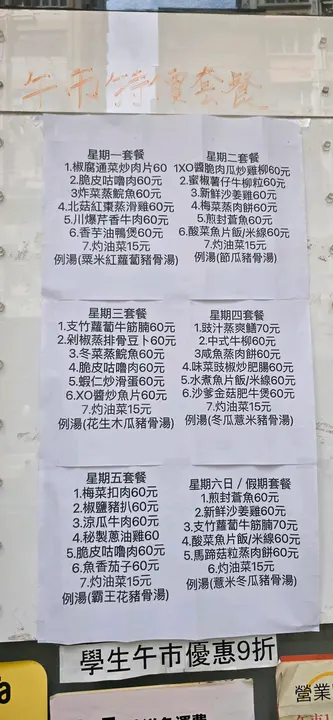 午市特價套餐
星期一套餐
1.椒腐通菜炒肉片60
2.脆皮咕嚕肉60元
3炸菜蒸鯇魚60元
4.北菇紅棗蒸滑雞60元
5.川爆芹香牛肉60元
6.香芋油鴨煲60元
7.灼油菜15元
例湯(粟米紅蘿蔔豬骨湯)
星期二套餐
1XO醬脆肉瓜炒雞柳60元
2.蜜椒薯仔牛柳粒60元
3.新鮮沙姜雞60元
4.梅菜蒸肉餅60元
5.煎封倉魚60元
6.酸菜魚片飯/米線60元
7.灼油菜15元
例湯(節瓜豬骨湯)
星期三套餐
1.支竹蘿蔔牛筋腩60元
2.剁椒蒸排骨豆卜60元
3.冬菜蒸鯇魚60元
4.脆皮咕嚕肉60元
5.蝦仁炒滑蛋60元
6.XO醬炒魚片60元
7.灼油菜15元
例湯(花生木瓜豬骨湯)
星期四套餐
1.豉汁蒸爽鱔70元
2.中式牛柳60元
3咸魚蒸肉餅60元
4.味菜豉椒炒肥腸60元
5.水煮魚片飯/米線60元
6.沙爹金菇肥牛煲60元
7.灼油菜15元
例湯(冬瓜薏米豬骨湯)
星期五套餐
1.梅菜扣肉60元
2.椒鹽豬扒60元
3.涼瓜牛肉60元
4.秘製蔥油雞60
5.脆皮咕嚕肉60元
6.魚香茄子60元
7.灼油菜15元
例湯(霸王花豬骨湯)
星期六日 / 假期套餐
1.煎封倉魚60元
2.新鮮沙姜雞60元
3.支竹蘿蔔牛筋腩70元
4.酸菜魚片飯/米線60元
5.馬蹄菇粒蒸肉餅60元
6.灼油菜15元
例湯(薏米冬瓜豬骨湯)
學生午市優惠9折
營業